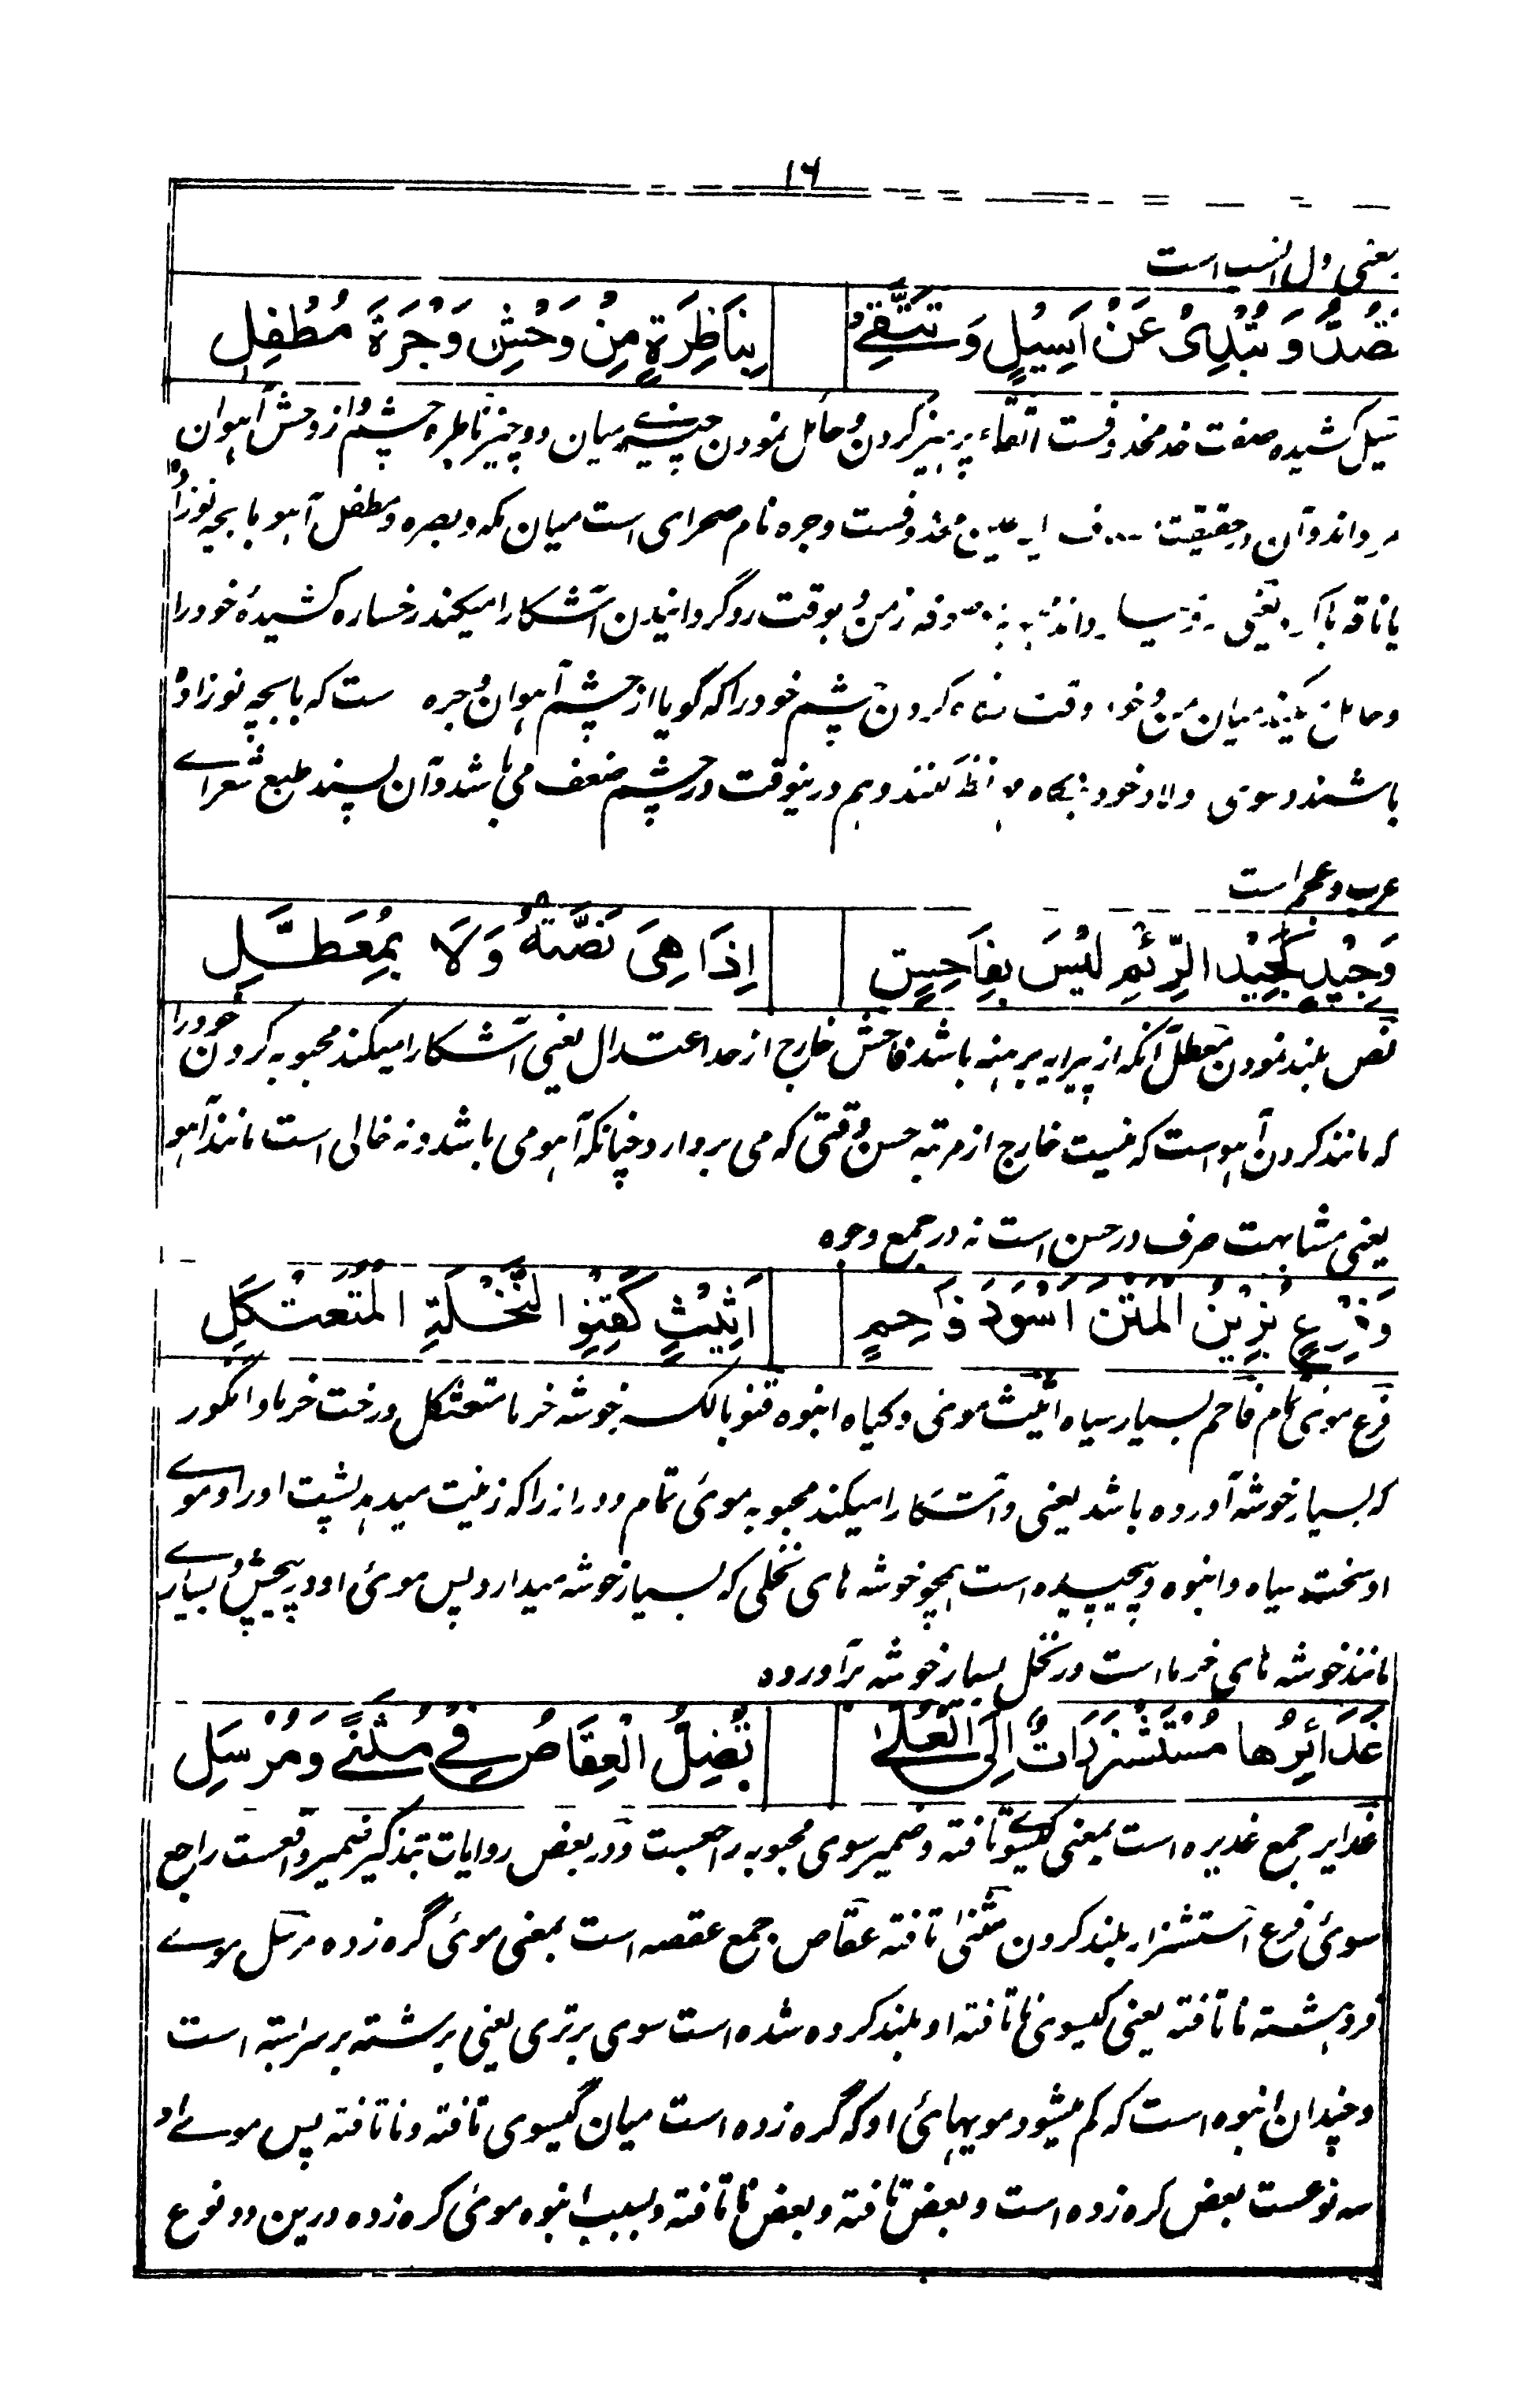 ١٦
یعنی ول انسب است
تَصُدُّ وَ تُبْدِیْ عَنْ اَسِیْلٍ وَ تَتَّقِیْ بِنَاظِرَةٍ مِنْ وَحْشِ وَجْرَةَ مُطْفِلِ
سیل کشیده صفت خد محذوفست اتقاء پرهیز کردن و حائل نمودن چیزے میان دو چیز ناظره چشم و از وحش آهوان
واند وآن حقیقت محذوفست وجره نام صحرای است میان مکه و بصره و مطفل آهو با بچه نوزاد
یا ناقه یعنی بوقت روگردانیدن آشکارا میکند رخساره کشیدهٔ خود را
و حائل میکند میان من و خود وقت نگاه کردن چشم خود را که گویا از چشم آهوان وجره ست که با بچه نوزاد
باشند و سوی ولاد خود نگاه کنند و هم درینوقت در چشم ضعف می باشد وآن پسند طبع شعراے
عرب و عجم است
وَجِیْدٍ کَجِیْدِ الرِّئْمِ لَیْسَ بِفَاحِشٍ اِذَا هِیَ نَصَّتْهُ وَلَا بِمُعَطَّلِ
نص بلند نمودن معطل آنکه از پیرایه برهنه باشد فاحش خارج از حد اعتدال یعنی آشکارا میکند محبوبه گردن خود را
که مانند گردن آهو است که نیست خارج از مرتبه حسن وقتی که می بردارد چنانکه آهو می باشد و نه خالی است مانند آهو
یعنی مشابهت صرف در حسن است نه در جمیع وجوه
وَفَرْعٍ یُزَیِّنُ الْمَتْنَ اَسْوَدَ فَاحِمٍ اَثِیْثٍ کَقِنْوِ النَّخْلَةِ الْمُتَعَثْکِلِ
فرع موئ تمام فاحم بسیار سیاه اثیث موئ و گیاه انبوه قنو بالکسر خوشه خرما متعثکل درخت خرما و انگور
که بسیار خوشه آورده باشد یعنی و آشکارا میکند محبوبه موئ تمام و دراز را که زینت میدهد پشت او را و موے
او سخت سیاه و انبوه و پیچیده است همچو خوشه های نخلی که بسیار خوشه میدارد پس موئ او در پیچش و بسیارے
مانند خوشه های خرما است در نخل بسیار خوشه برآورده
غَدَائِرُهَا مُسْتَشْزِرَاتٌ اِلَی الْعُلٰی تَضِلُّ الْعِقَاصُ فِیْ مُثَنًّی وَمُرْسَلِ
غدایر جمع غدیره است بمعنی گیسوے تافته و ضمیر سوی محبوبه راجعست و در بعض روایات بتذکیر ضمیر واقعست راجع
سوئ فرع استشزار بلند کردن مثنی تافته عقاص جمع عقصه است بمعنی موئ گره زده مرسل موے
فروهشته نا تافته یعنی گیسوئ تافته او بلند کرده شده است سوی برتری یعنی برشته بر سر بسته است
و چندان انبوه است که گم میشود مویهائ او که گره زده است میان گیسوی تافته و نا تافته پس موے او
سه نوعست بعض گره زده است و بعض تافته و بعض نا تافته و بسبب انبوه موئ گره زده درین دو نوع